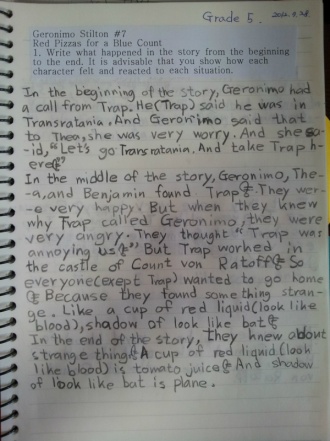 Grade 5.
Geronimo Stilton #7
Red Pizzas for a Blue Count
1. Write what happened in the story from the beginning
to the end. It is advisable that you show how each
character felt and reacted to each situation.
In the beginning of the story, Geronimo had
a call from Trap. He(Trap) said he was in
Transratania. And Geronimo said that
to Thea, she was very worry. And she sa-
id, "Let's go Transratanin. And take Trap h-
ere."
In the middle of the story, Geronimo, The-
-a, and Benjamin found Trap. They wer-
-e very happy. But when they knew
why Trap called Geronimo, they were
very angry. They thought "Trap was
annoying us" But Trap worked in
the castle of Count von Ratoff. So
everyone(exept Trap) wanted to go home
. Because they found some thing stran-
ge. Like a cup of red liquid(look like
blood), shadow of look like bat.
In the end of the story, they knew about
strange thing. A cup of red liquid(look
like blood) is tomato juice. And shadow
of look like bat is plane.